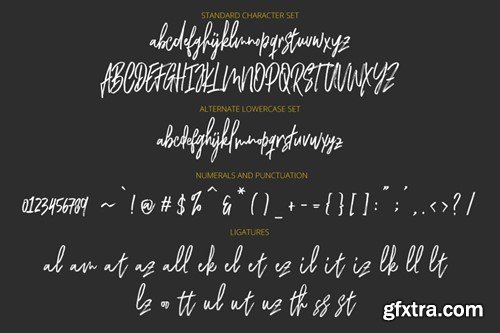 STANDARD CHARACTER SET
abcdefghijklmnopqrstuvwxyz
ABCDEFGHIJKLMNOPQRSTUVWXYZ
ALTERNATE LOWERCASE SET
abcdefghijklmnopqrstuvwxyz
NUMERALS AND PUNCTUATION
0123456789 ~ ` ! @ # $ % ^ & * ( ) _ + - = { } [ ] : " ; ' , . < > ? /
LIGATURES
al am at az all ek el et ez il it iz lk ll lt
lz oo tt ul ut uz th ss st
gfxtra.com